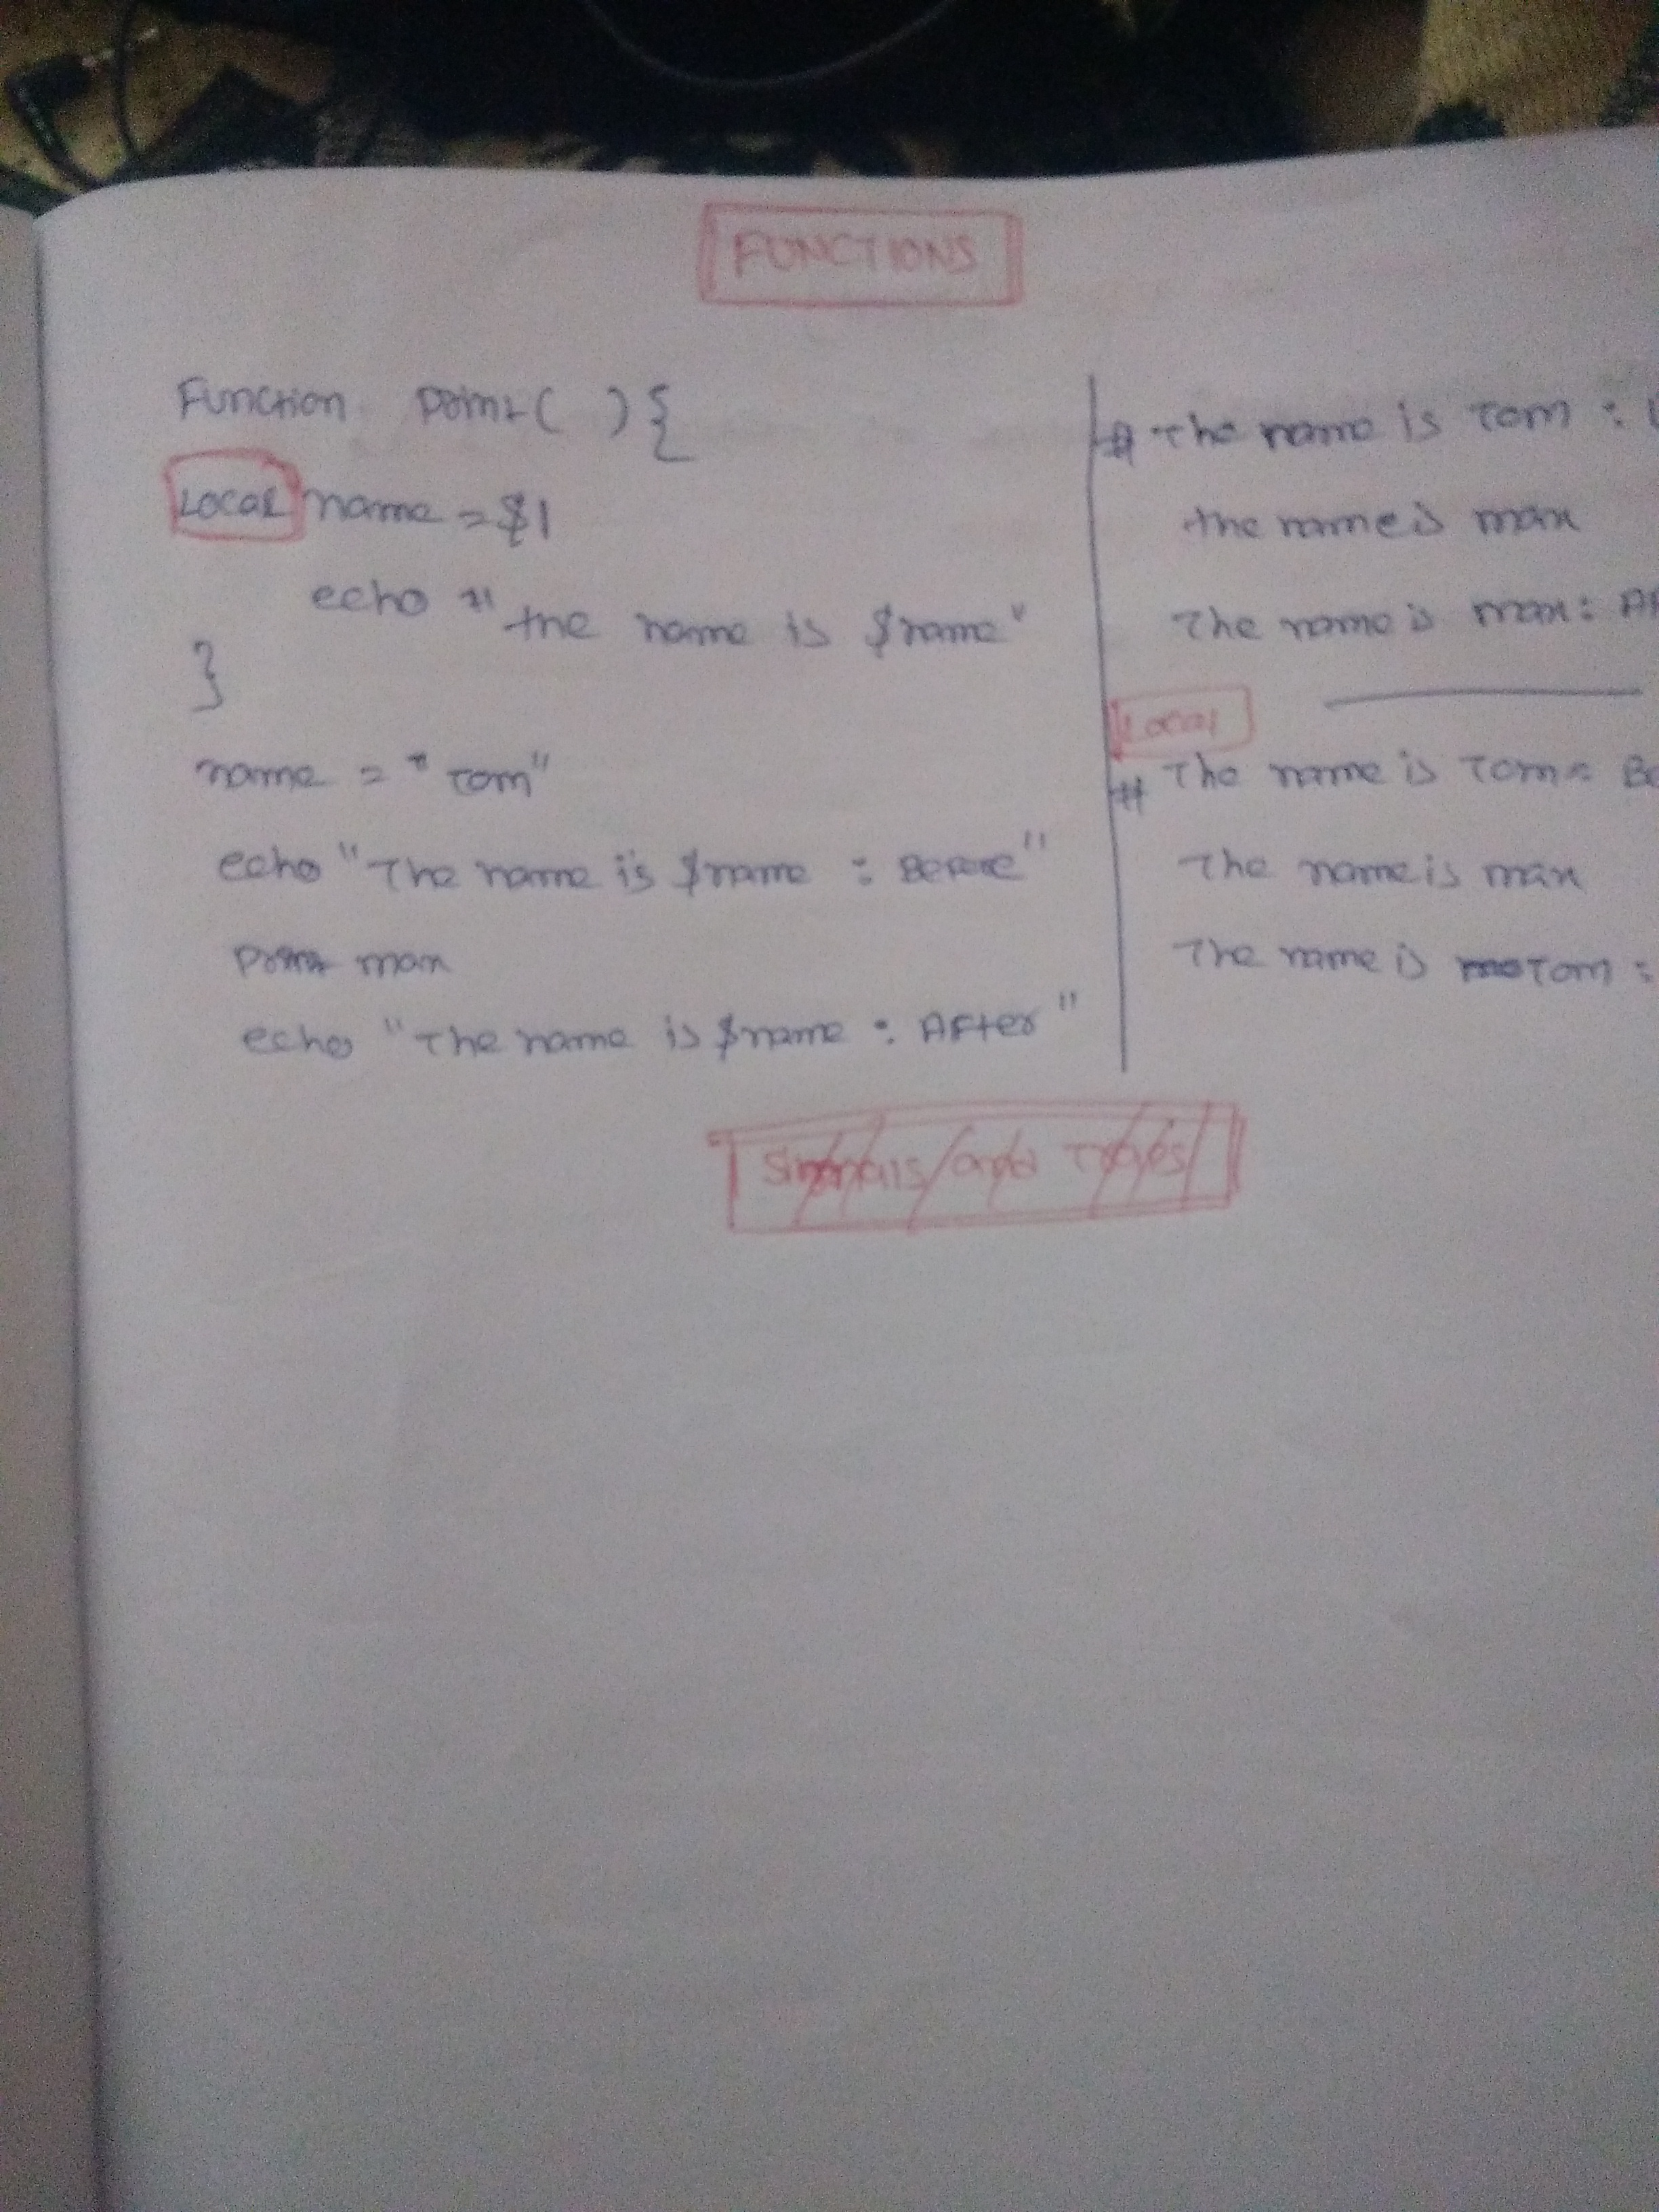 FUNCTIONS
Function print( ) {
Local name = $1
echo "the name is $name"
}
name = "Tom"
echo "The name is $name : Before"
print max
echo "The name is $name : After"
# The name is Tom :
the name is max
The name is max : Af
Local
# The name is Tom : Be
The name is max
The name is Tom :
Signals and Traps